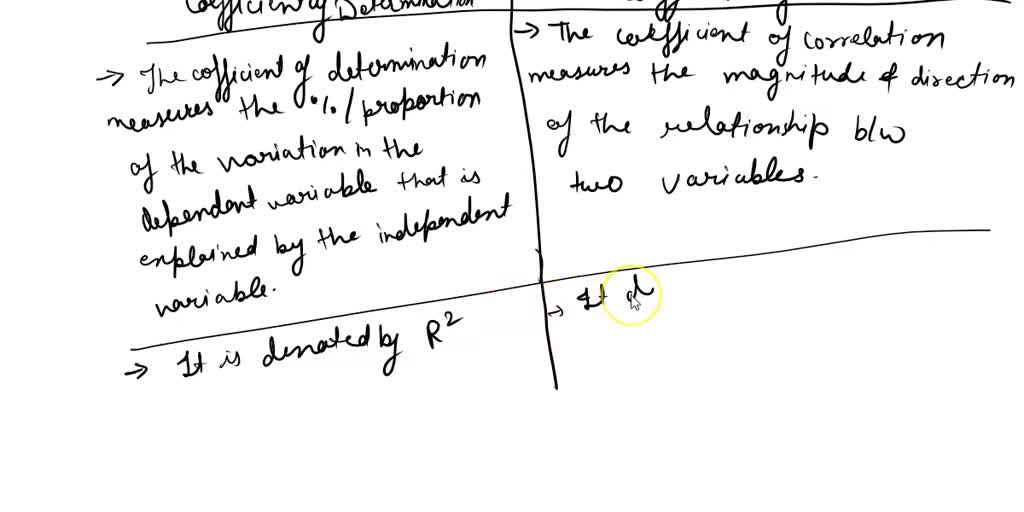 Coefficient of Determination
→ The cofficient of determination
measures the %/proportion
of the variation in the
dependent variable that is
explained by the independent
variable.
→ It is denoted by R²
→ The coefficient of correlation
measures the magnitude & direction
of the relationship b/w
two variables.
→ It d